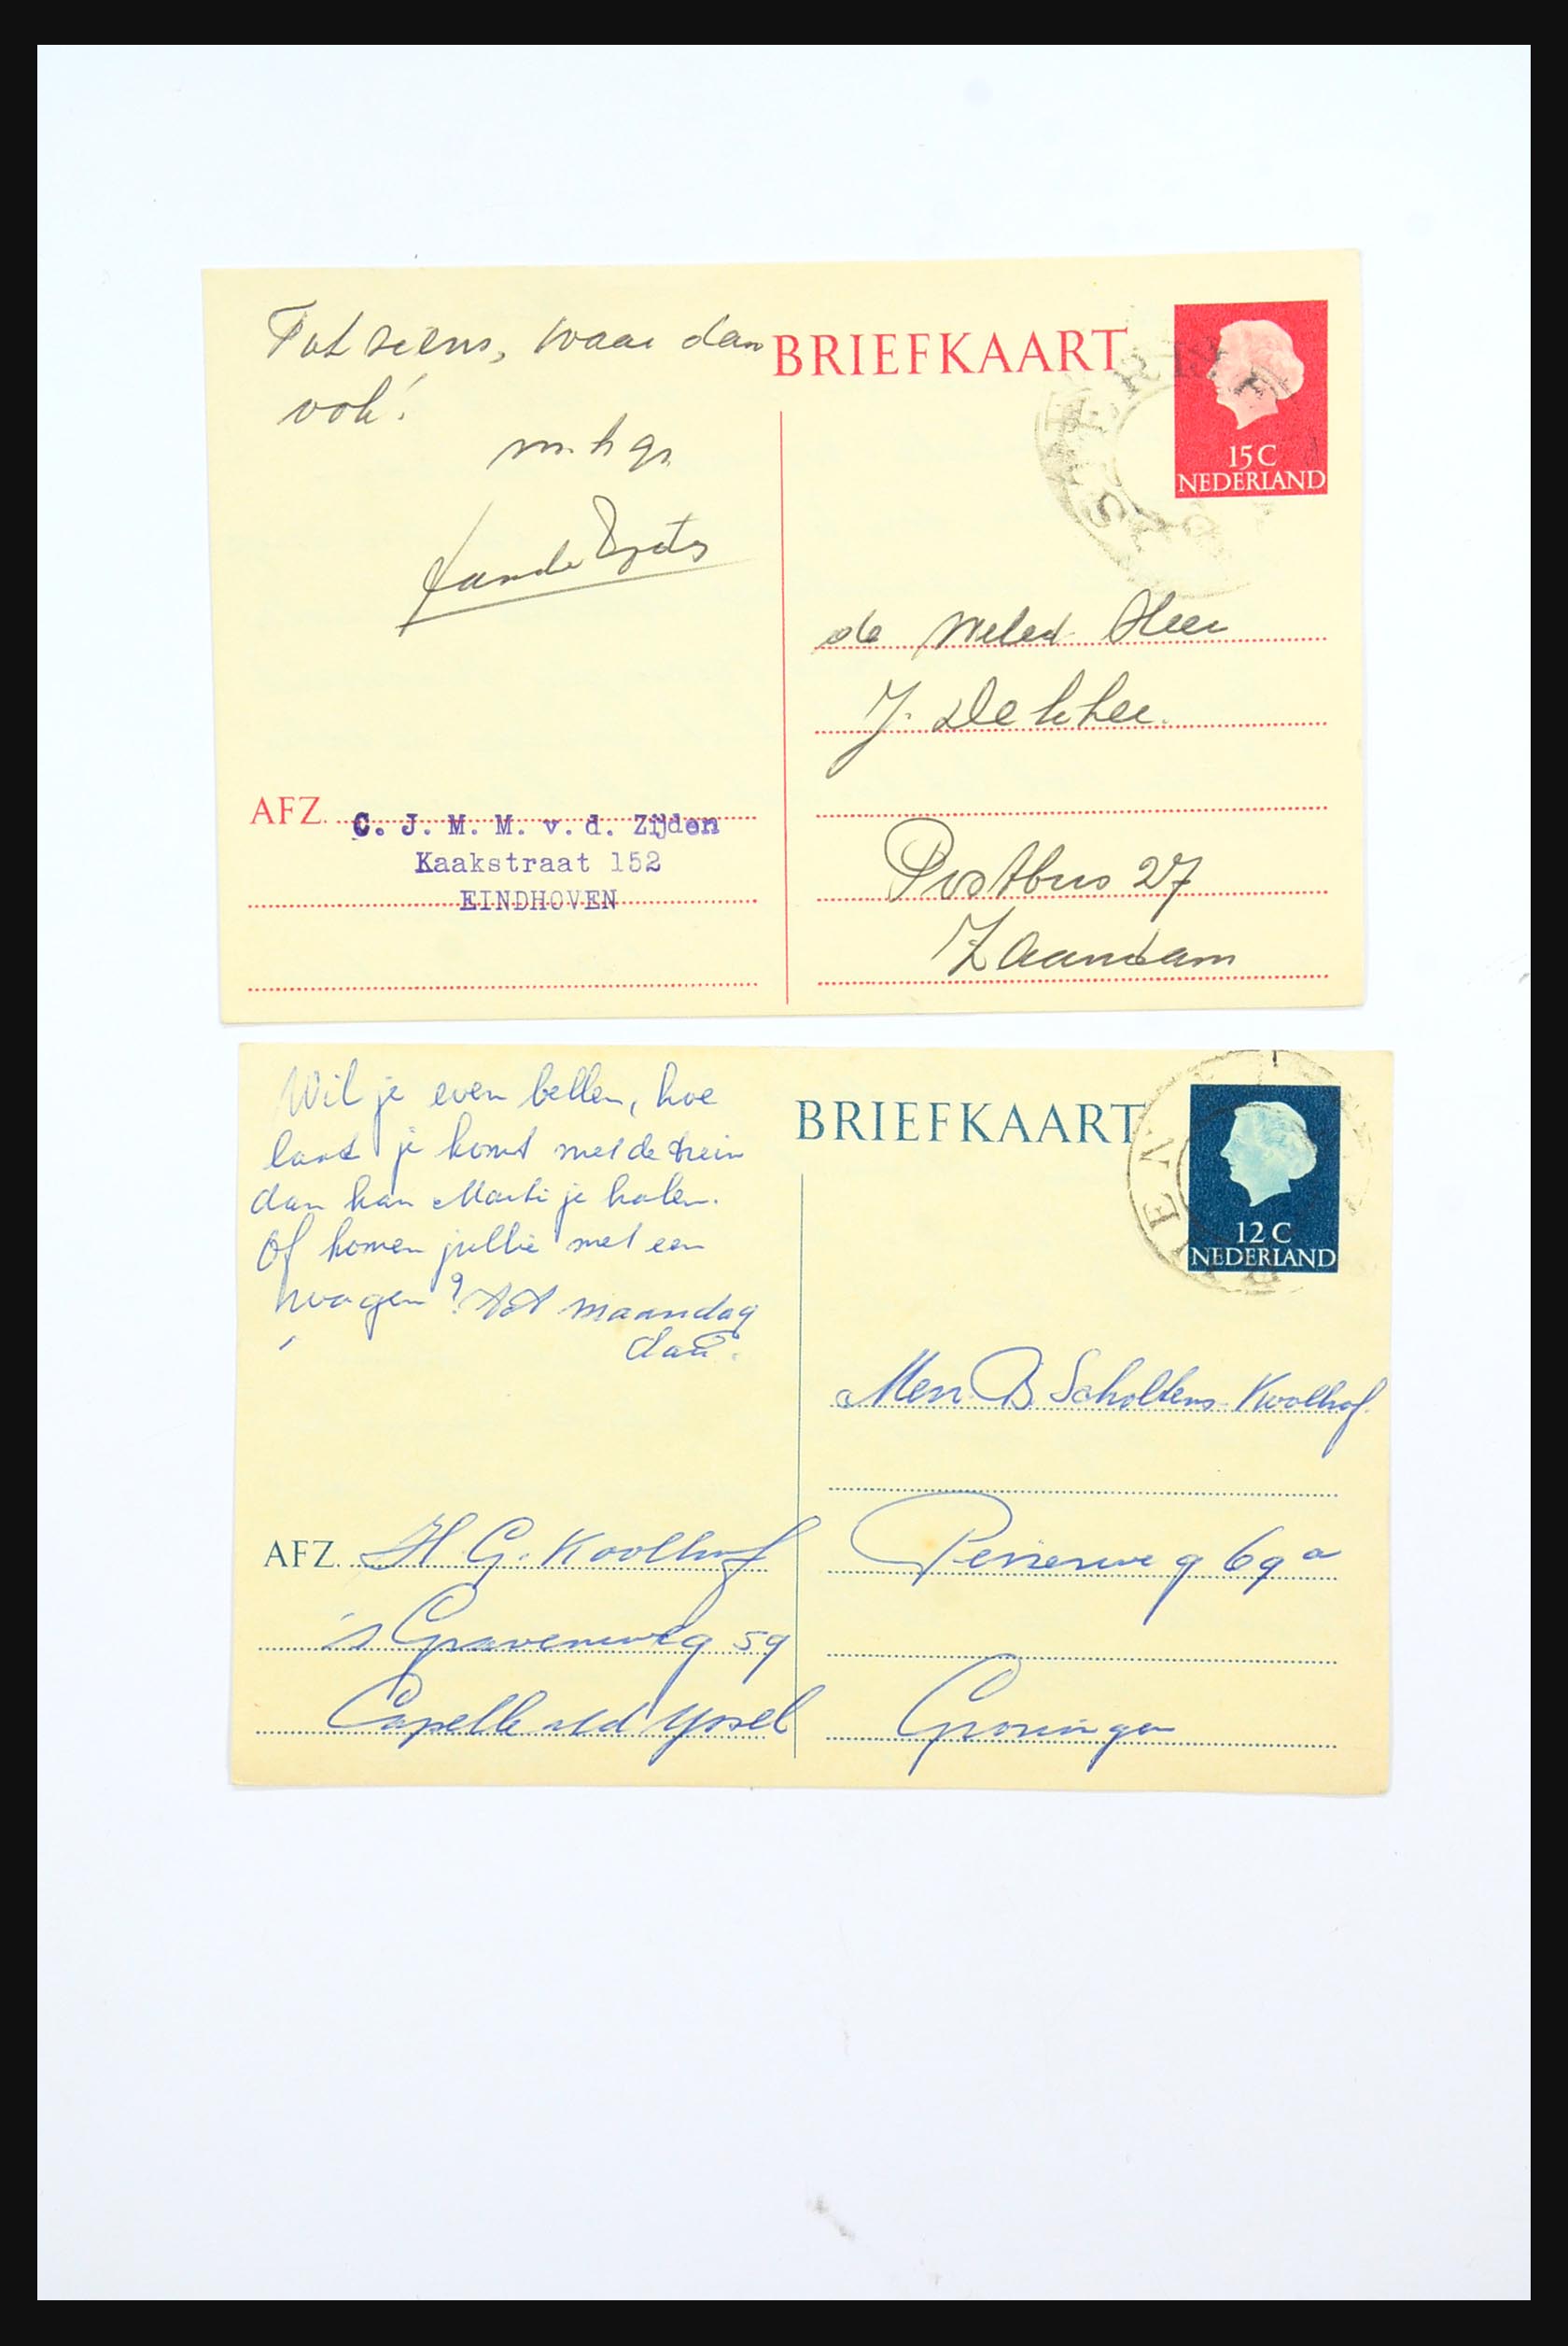 Tot ziens, waar dan
ook!
m. h. gr.
BRIEFKAART
15 C
NEDERLAND
de Weled. Heer
J. Dekker.
Postbus 27
Zaandam
AFZ.
C. J. M. M. v. d. Zijden
Kaakstraat 152
EINDHOVEN
Wil je even bellen, hoe
laat je komt met de trein
dan kan je halen.
Of komen jullie met een
wagen? tot maandag
dan.
BRIEFKAART
12 C
NEDERLAND
Mevr. B Scholtens-Koolhof.
69a
Groningen
AFZ. H. G. Koolhof
's Gravenweg 59
Capelle a/d Yssel